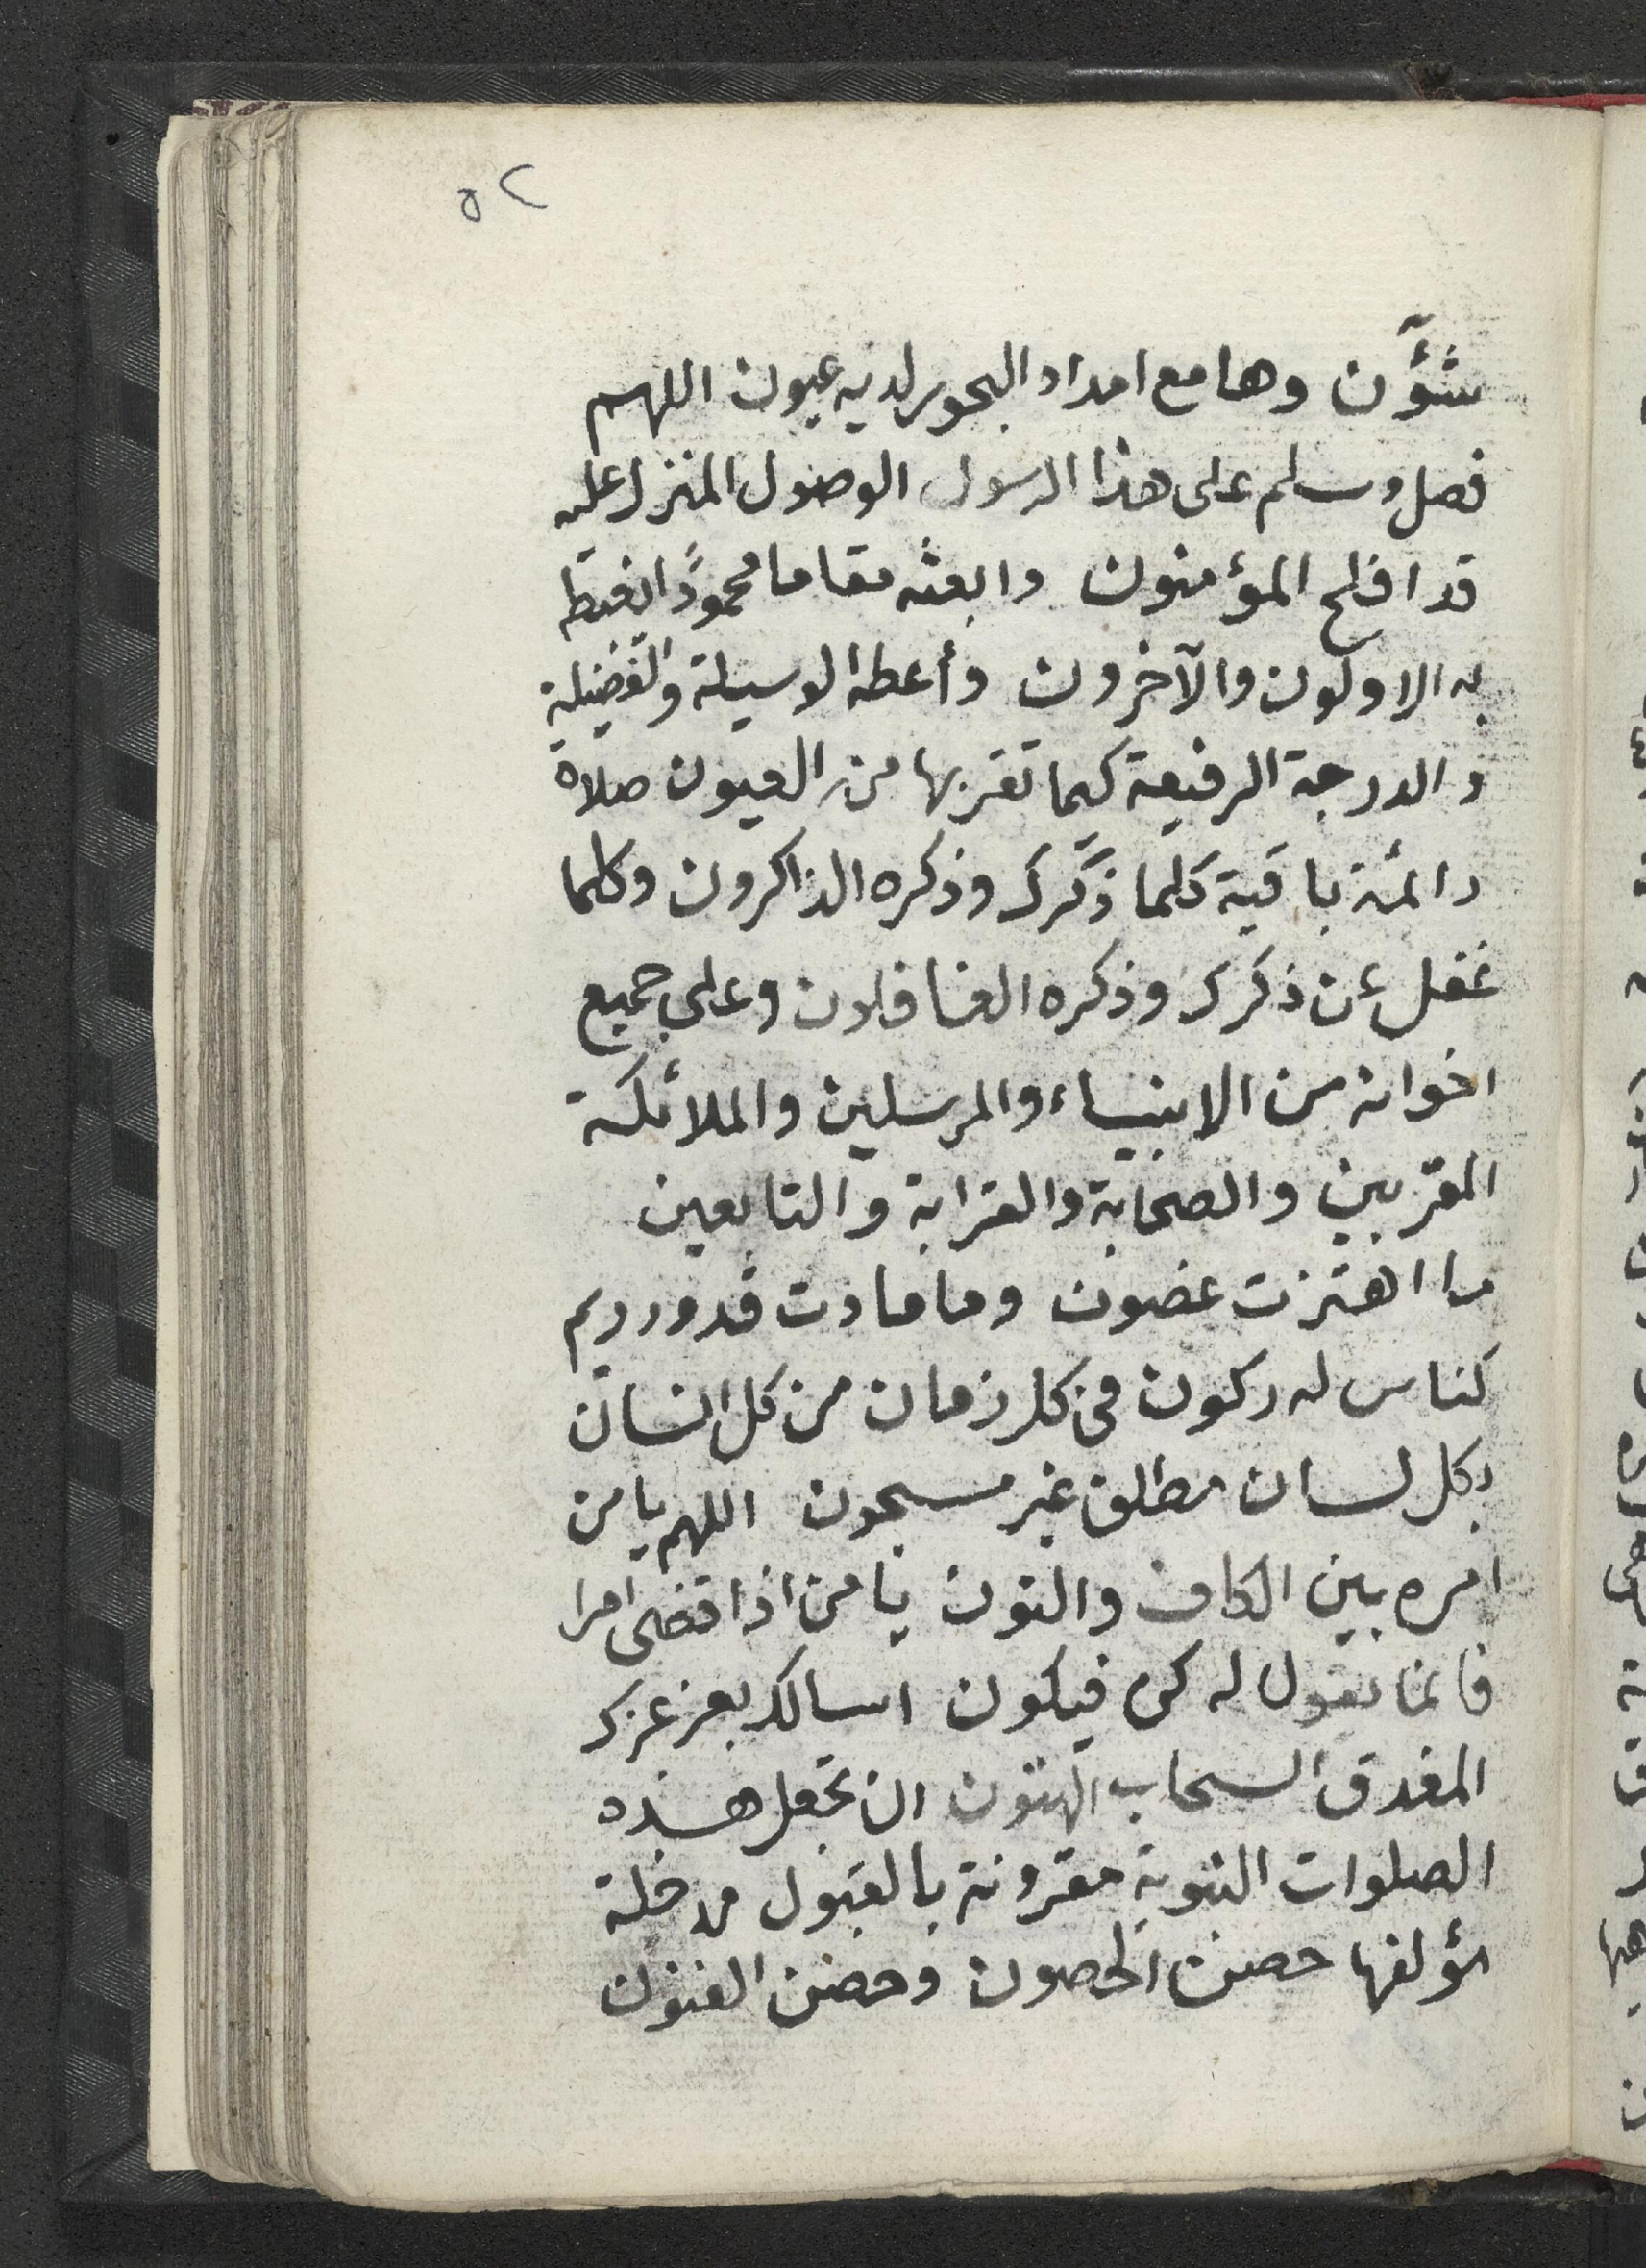 ٥٢
شؤن وهامع امداد البحور لديه عيون اللهم
فصل وسلم على هذا الرسول الوصول المنزل عليه
قد افلح المؤمنون وابعثه مقاما محمودًا يغبطه
به الاولون والآخرون وأعطه الوسيلة والفضيلة
والدرجة الرفيعة كيما تقر بها من العيون صلاة
دائمة باقية كلما ذكرك وذكره الذاكرون وكلما
غفل عن ذكرك وذكره الغافلون وعلى جميع
اخوانه من الانبياء والمرسلين والملائكة
المقربين والصحابة والقرابة والتابعين
ما اهتزت غصون وما مادت قدود ريم
كناس له ركون في كل زمان من كل انسان
بكل لسان مطلق غير مسجون اللهم يا من
امره بين الكاف والنون يا من اذا قضى امرا
فانما يقول له كن فيكون اسالك بعز عزك
المغدق السحاب الهتون ان تجعل هذه
الصلوات النبوية مقرونة بالقبول مدخلة
مؤلفها حصن الحصون وحضن الفنون